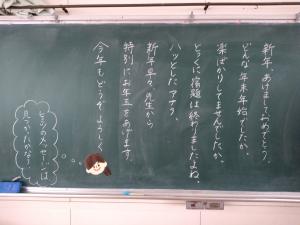 新年、あけましておめでとう。
どんな年末年始でしたか。
楽ばかりしてませんでしたか。
とっくに宿題は終わりましたよね。
ハッとした、アナタ。
新年早々、先生から
特別にお年玉をあげます。
今年もどうぞよろしく
ヒミツのメッセージは
見つかったかな？